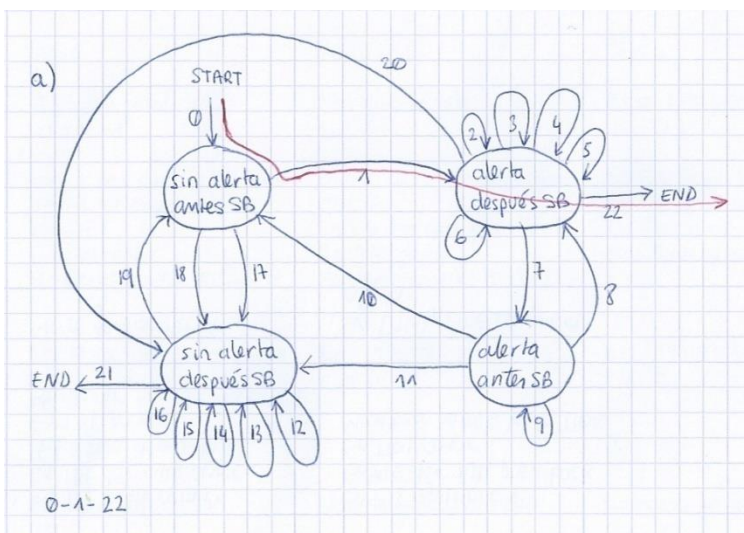 a)
START
0
20
sin alerta
antes SB
1
2
3
4
5
alerta
después SB
END
22
6
7
8
19
18
17
10
sin alerta
después SB
alerta
antes SB
11
END
21
16
15
14
13
12
9
0-1-22